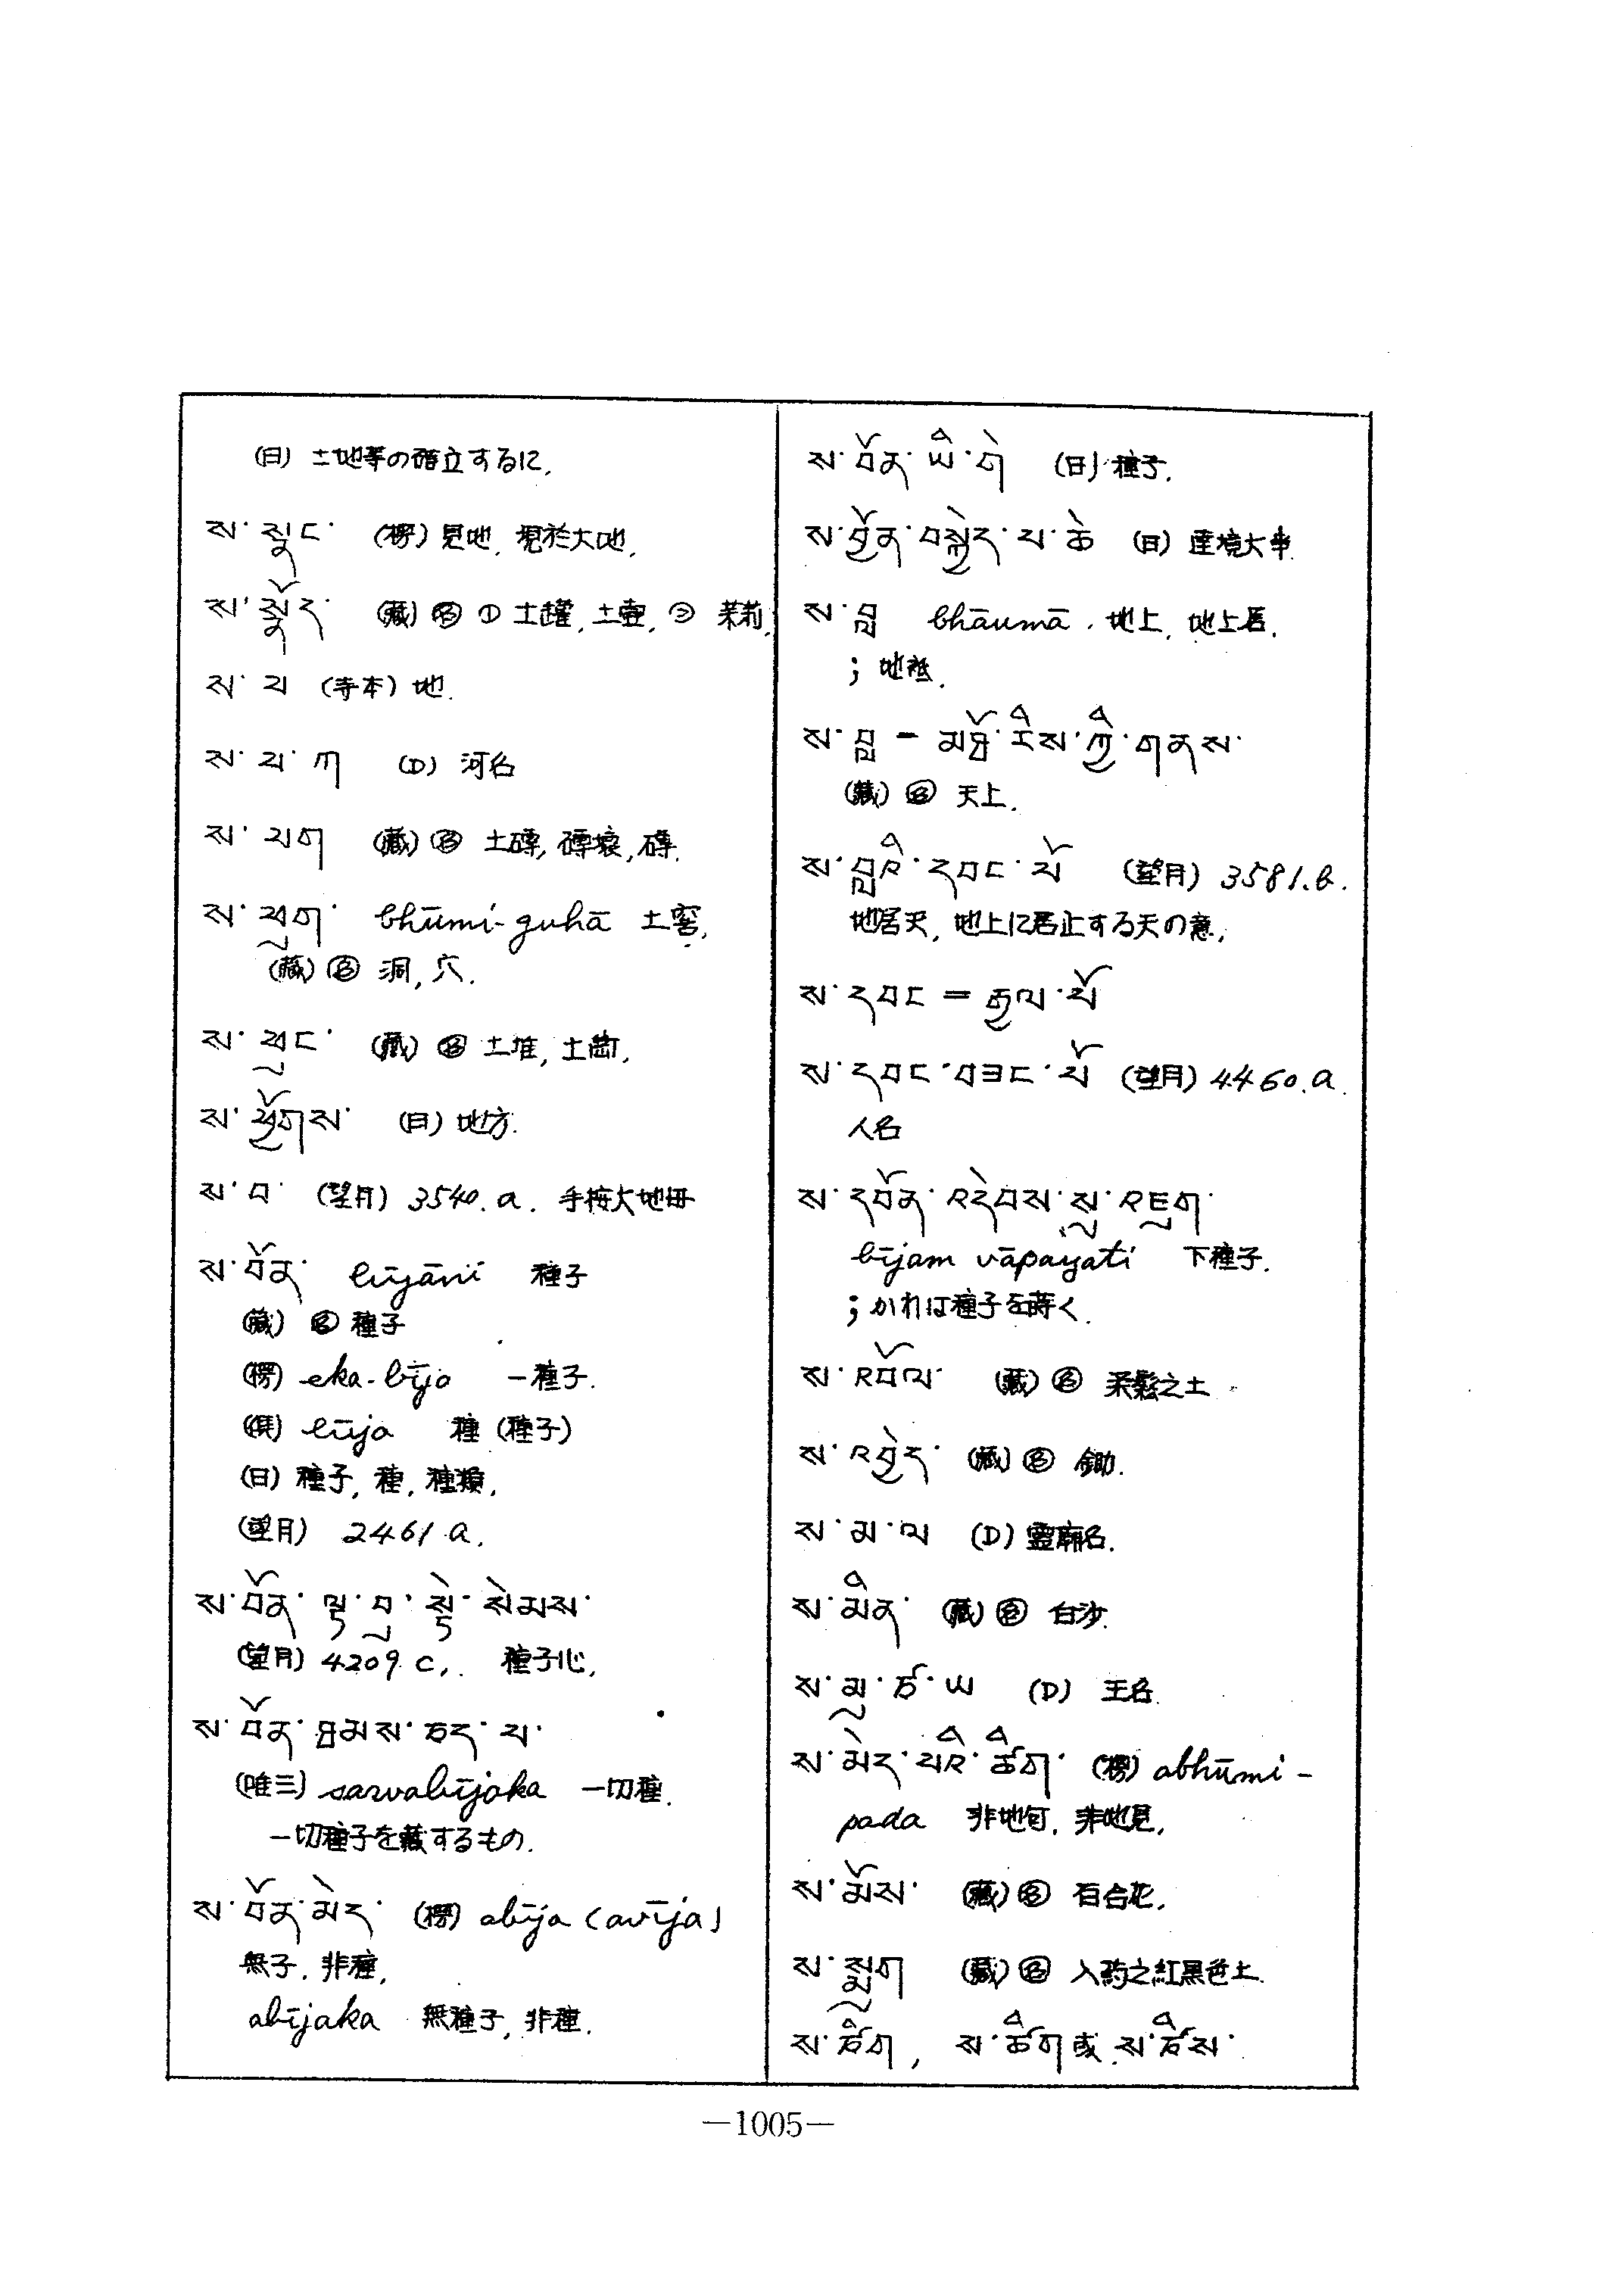 (日) 土地等の確立するに,
ས་སྣང་ (楞) 見地, 現於大地,
ས་སྣོད་ (藏) 名 ① 土罐, 土壺, ② 茉莉,
ས་པ (寺本) 地.
ས་པ་ཀ (D) 河名
ས་པག (藏) 名 土磚, 磚壞, 磚.
ས་ཕུག་ bhūmi-guhā 土窖,
(藏) 名 洞, 穴.
ས་ཕུང་ (藏) 名 土堆, 土崗,
ས་ཕྱོགས་ (日) 地方.
ས་བ་ (望月) 3540.a. 手按大地毋
ས་བོན་ bījāni 種子
(藏) 名 種子
(楞) eka-bīja 一種子.
(倶) bīja 種 (種子)
(日) 種子, 種, 種類,
(望月) 2461 a.
ས་བོན་ལྟ་བུ་སྟེ་སེམས་
(望月) 4209 c,. 種子心,
ས་བོན་ཐམས་ཅད་པ་
(唯三) sarvabījaka 一切種.
一切種子を藏するもの.
ས་བོན་མེད་ (楞) abīja (avīja)
無子, 非種,
abījaka 無種子, 非種.
ས་བོན་ཡི་གེ (日) 種子.
ས་བྱོན་བསྐྱེད་པ་ཆེ (日) 達境大事
ས་བླ bhāumā, 地上, 地上居,
; 地祗.
ས་བླ – མཐོ་རིས་ཀྱི་གནས་
(藏) 名 天上.
ས་བླའི་དབང་པོ (望月) 3581.b.
地居天, 地上に居止する天の意,
ས་དབང = རྒྱལ་པོ
ས་དབང་བཟང་པོ (望月) 4460.a.
人名
ས་དབོན་འདེབས་སུ་འཇུག་
bījam vāpayati 下種子.
; かれは種子を蒔く.
ས་འབོལ་ (藏) 名 柔鬆之土
ས་འབྱེད་ (藏) 名 鋤.
ས་མ་ལ (D) 靈廟名.
ས་མིན་ (藏) 名 白沙.
ས་མུ་ཙ་ཡ (D) 王名.
ས་མེད་པའི་ཚིག་ (楞) abhūmi-
pada 非地句, 非地見,
ས་མོས་ (藏) 名 百合花,
ས་སྨུག (藏) 名 入葯之紅黑色土.
ས་ཙིག, ས་ཚིག或 ས་ཙིས་
—1005—